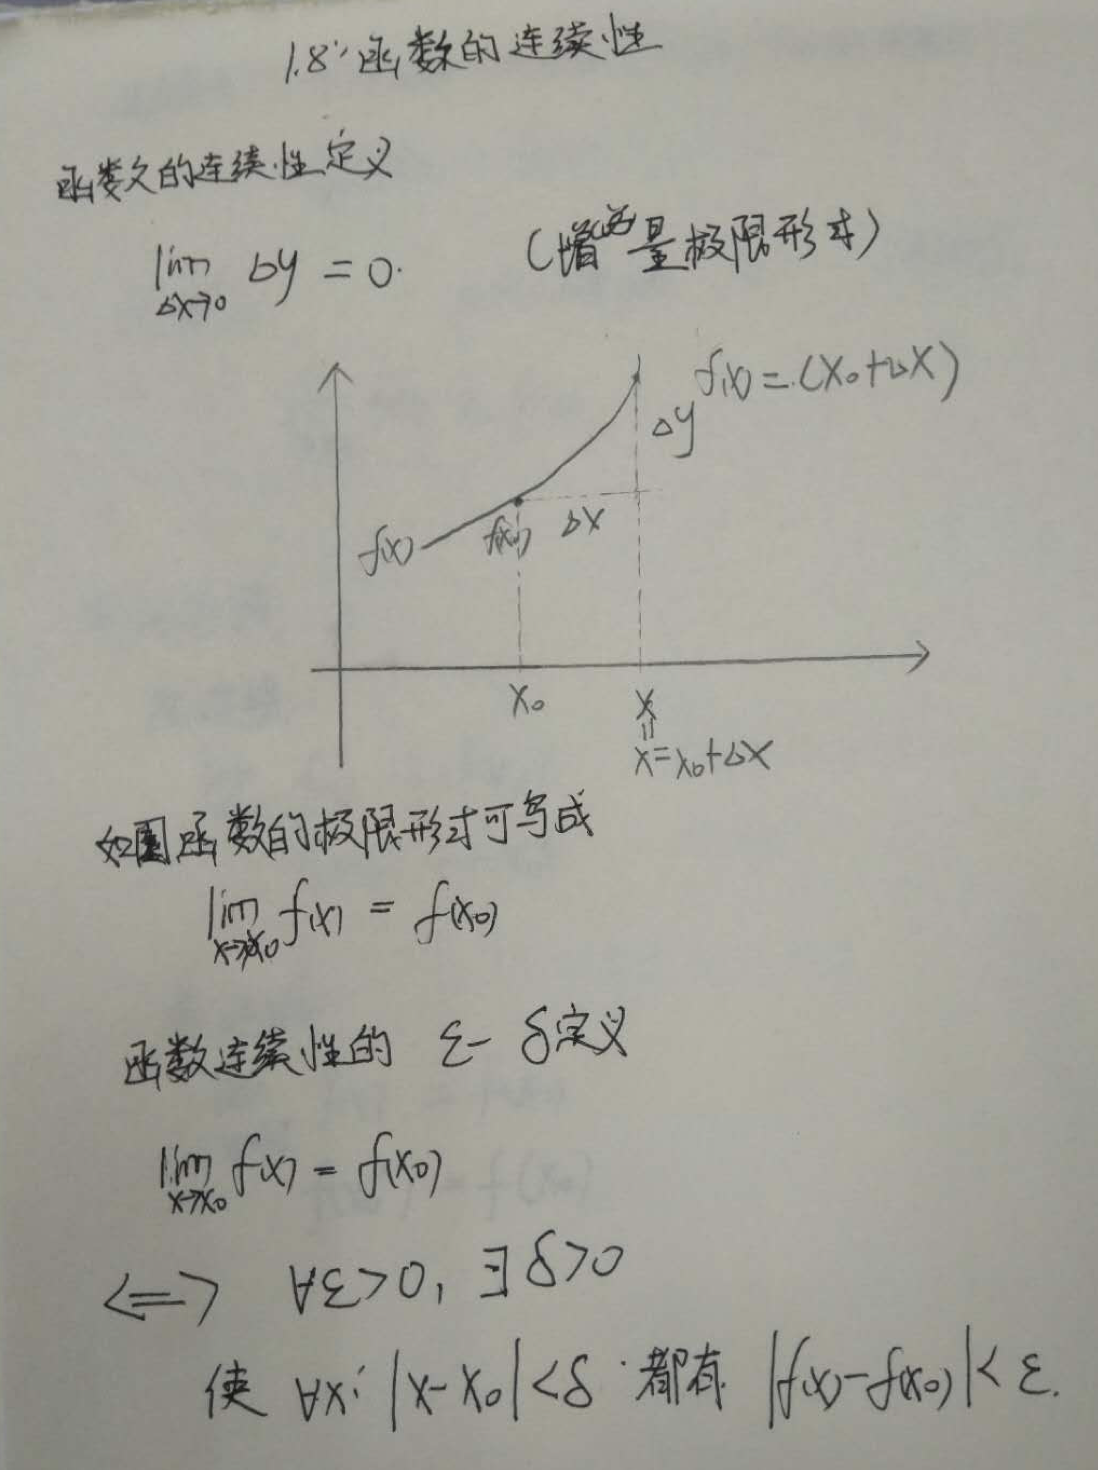 1.8 函数的连续性
函数的连续性定义
lim Δy = 0.
Δx→0
(增量极限形式)
f(x) = (x₀+Δx)
Δy
f(x) f(x₀) Δx
x₀ x
||
x=x₀+Δx
如图函数的极限形式可写成
lim f(x) = f(x₀)
x→x₀
函数连续性的 ε-δ定义
lim f(x) = f(x₀)
x→x₀
<=> ∀ε>0, ∃δ>0
使 ∀x: |x-x₀|<δ 都有 |f(x)-f(x₀)|<ε.